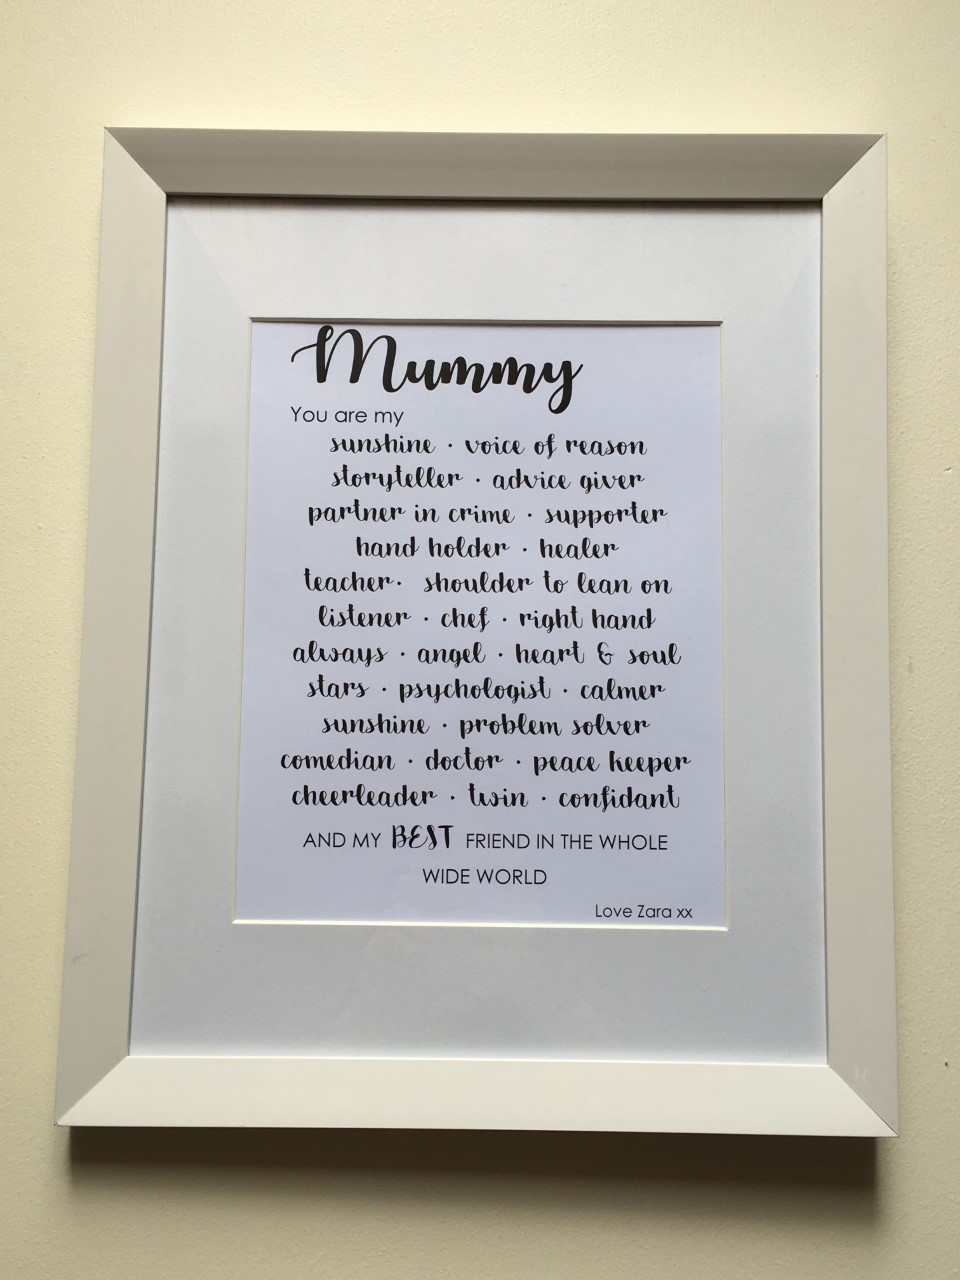 Mummy
You are my
sunshine · voice of reason
storyteller · advice giver
partner in crime · supporter
hand holder · healer
teacher· shoulder to lean on
listener · chef · right hand
always · angel · heart & soul
stars · psychologist · calmer
sunshine · problem solver
comedian · doctor · peace keeper
cheerleader · twin · confidant
AND MY BEST FRIEND IN THE WHOLE
WIDE WORLD
Love Zara xx